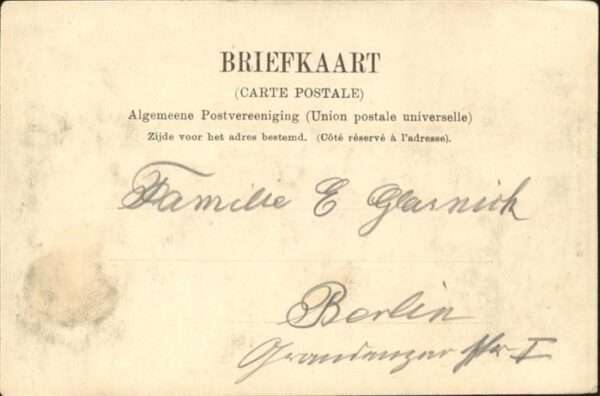 BRIEFKAART
(CARTE POSTALE)
Algemeene Postvereeniging (Union postale universelle)
Zijde voor het adres bestemd. (Côté réservé à l'adresse).
Familie E Glasnick
Berlin
Graudenzer Str I